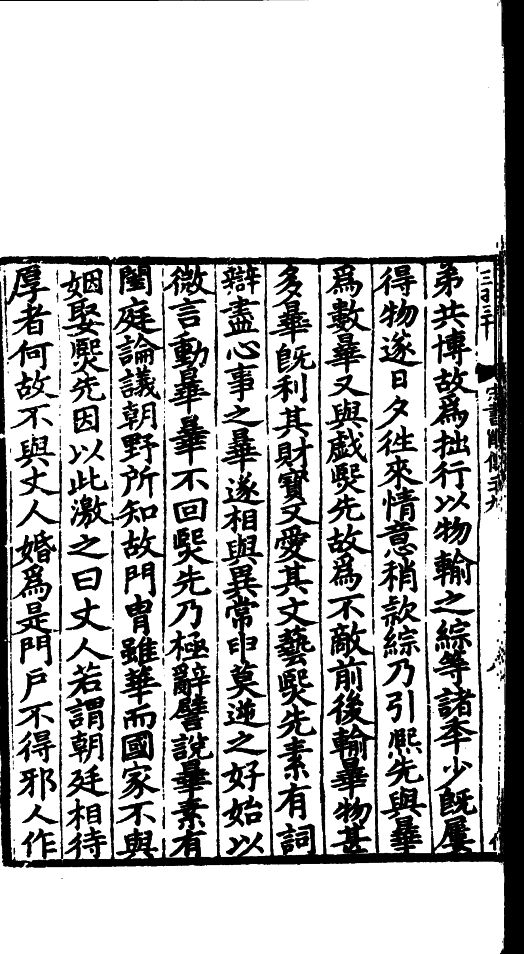 弟共博故爲拙行以物輸之綜等諸年少既屢
得物遂日夕往來情意稍款綜乃引熈先與曄
爲數曄又與戲熈先故爲不敵前後輸曄物甚
多曄既利其財寳又愛其文藝熈先素有詞
辯盡心事之曄遂相與異常申莫逆之好始以
微言動曄曄不回熈先乃極辭譬說曄素有
閨庭論議朝野所知故門胄雖華而國家不與
姻娶熈先因以此激之曰丈人若謂朝廷相待
厚者何故不與丈人婚爲是門戶不得邪人作